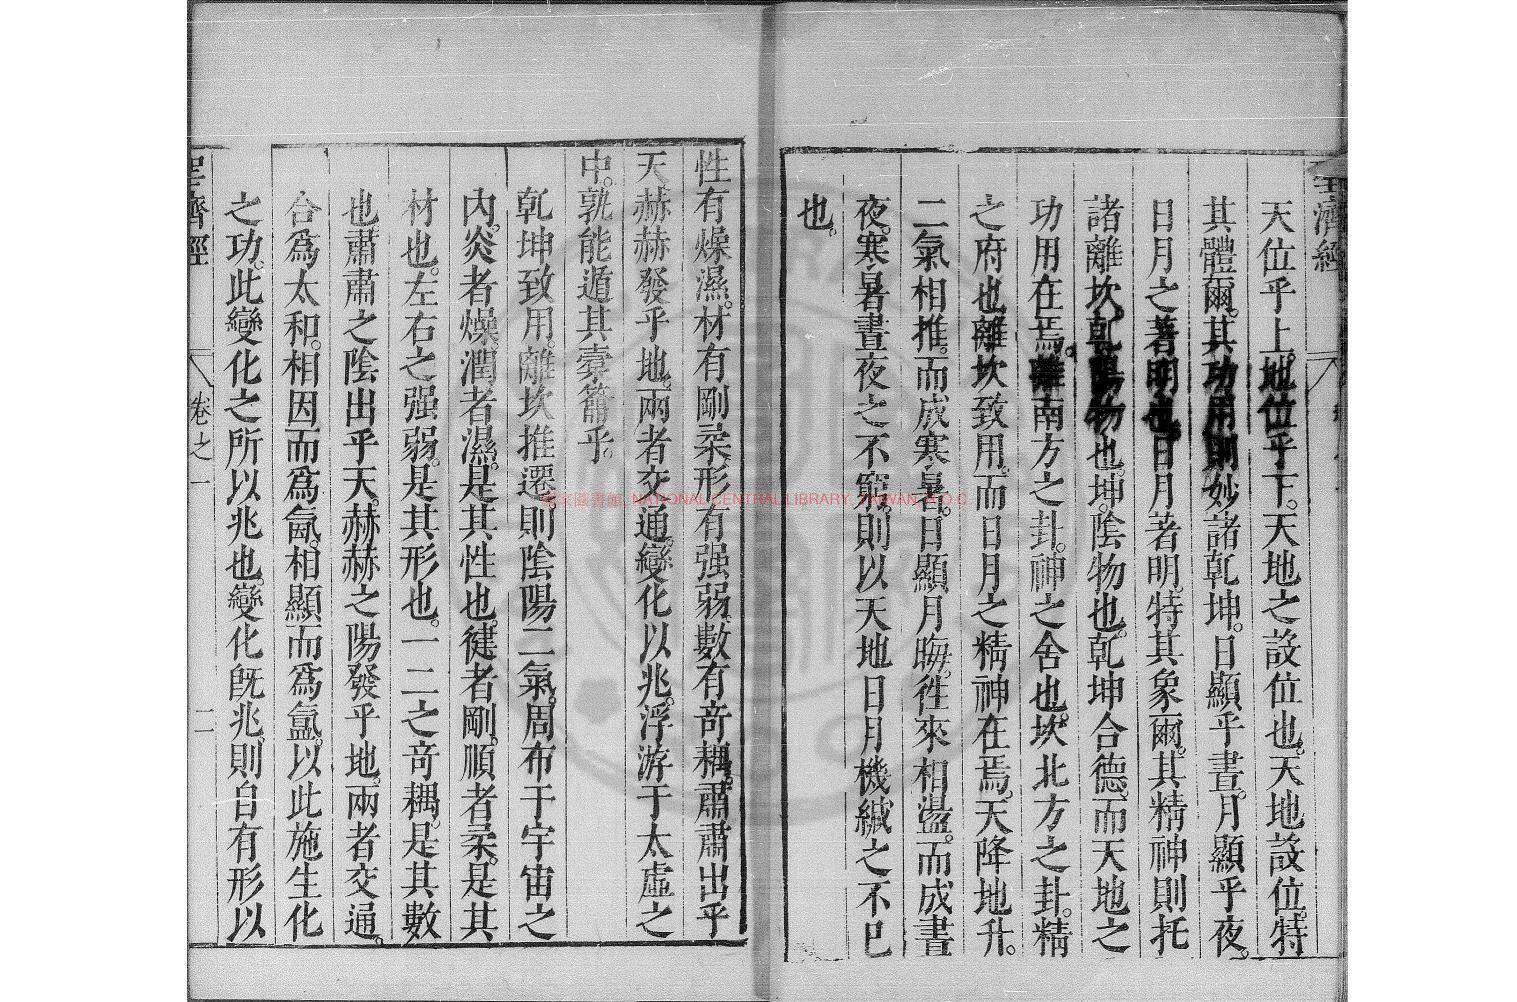 聖濟經
天位乎上。地位乎下。天地之設位也。天地設位。特
其體爾。其功用則妙諸乾坤。日顯乎晝。月顯乎夜。
日月之著明也。日月著明。特其象爾。其精神則托
諸離坎。乾陽物也。坤陰物也。乾坤合德。而天地之
功用在焉。離南方之卦。神之舍也。坎北方之卦。精
之府也。離坎致用。而日月之精神在焉。天降地升。
二氣相推。而成寒暑。日顯月晦。徃來相盪。而成晝
夜。寒暑晝夜之不窮。則以天地日月機緘之不已
也。
性有燥濕。材有剛柔。形有强弱。數有奇耦。肅肅出乎
天。赫赫發乎地。兩者交通。變化以兆。浮游于太虛之
中。孰能遁其橐籥乎。
乾坤致用。離坎推遷。則陰陽二氣。周布于宇宙之
內。炎者燥。潤者濕。是其性也。健者剛。順者柔。是其
材也。左右之强弱。是其形也。一二之奇耦。是其數
也。肅肅之陰出乎天。赫赫之陽發乎地。兩者交通。
合爲太和。相因而爲氤。相顯而爲氳。以此施生化
之功。此變化之所以兆也。變化旣兆。則自有形以
聖濟經
卷之一
二
國家圖書館, NATIONAL CENTRAL LIBRARY, TAIWAN, R.O.C